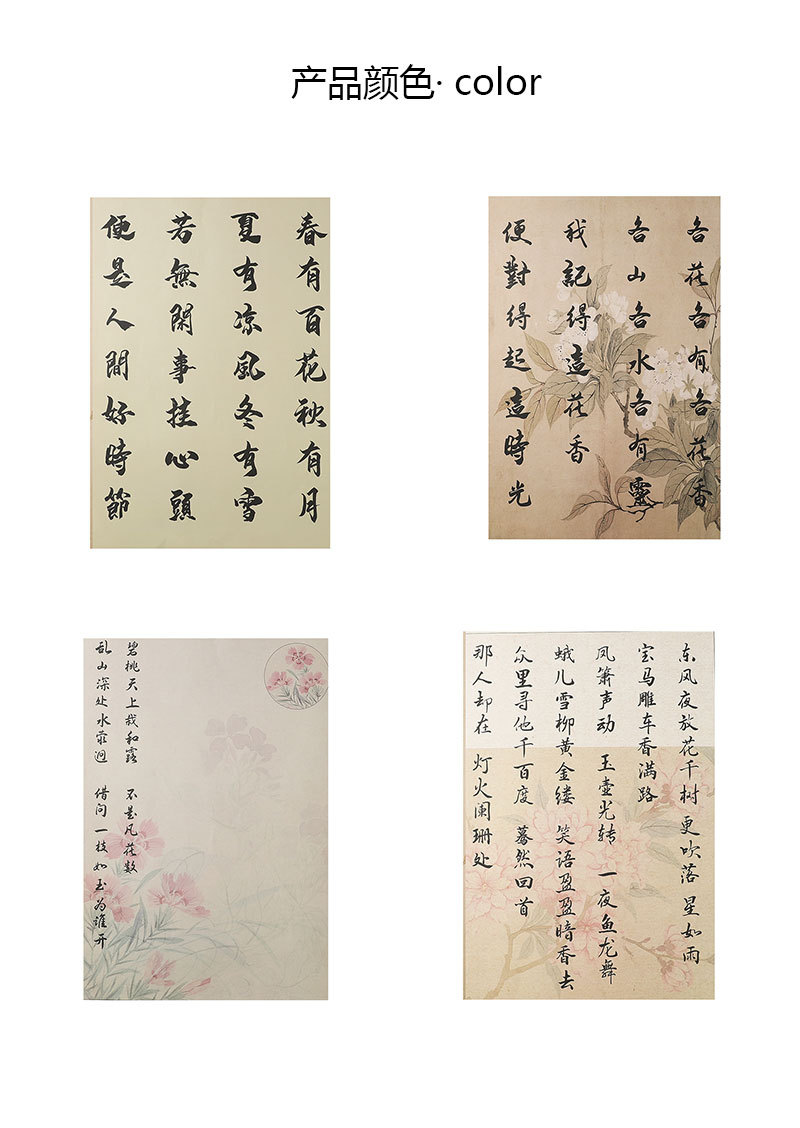 产品颜色· color
春有百花秋有月
夏有凉風冬有雪
若無閑事挂心頭
便是人間好時節
各花各有各花香
各山各水各有靈
我記得這花香
便對得起這時光
碧桃天上我和露 不是凡花数
乱山深处水萦迴 借问一枝如玉为谁开
东风夜放花千树 更吹落 星如雨
宝马雕车香满路
凤箫声动 玉壶光转 一夜鱼龙舞
蛾儿雪柳黄金缕 笑语盈盈暗香去
众里寻他千百度 蓦然回首
那人却在 灯火阑珊处